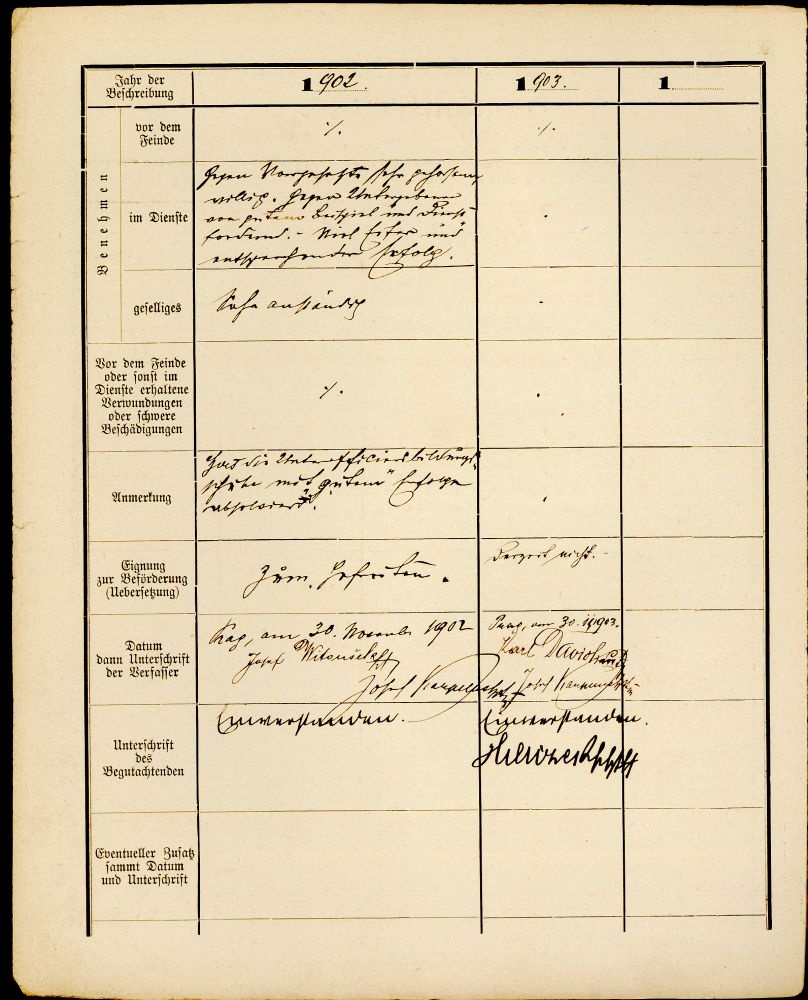 Jahr der
Beschreibung
1902.
1903.
1
Benehmen
vor dem
Feinde
./.
./.
im Dienste
Gegen Vorgesetzte sehr gehorsam,
willig. Gegen Untergebene
von gutem Beispiel und Dienst
fordernd. – Viel Eifer und
entsprechender Erfolg.
geselliges
Sehr anständig
Vor dem Feinde
oder sonst im
Dienste erhaltene
Verwundungen
oder schwere
Beschädigungen
./.
Anmerkung
Hat die Unterofficiersbildungs-
schule mit „gutem" Erfolge
absolviert.
Eignung
zur Beförderung
(Uebersetzung)
Zum Gefreiten.
Derzeit nicht.
Datum
dann Unterschrift
der Verfasser
Prag, am 30. November 1902
Josef
Josef
Prag, am 30. 1903.
Karl
Josef
Unterschrift
des
Begutachtenden
Einverstanden.
Einverstanden.
Eventueller Zusatz
sammt Datum
und Unterschrift